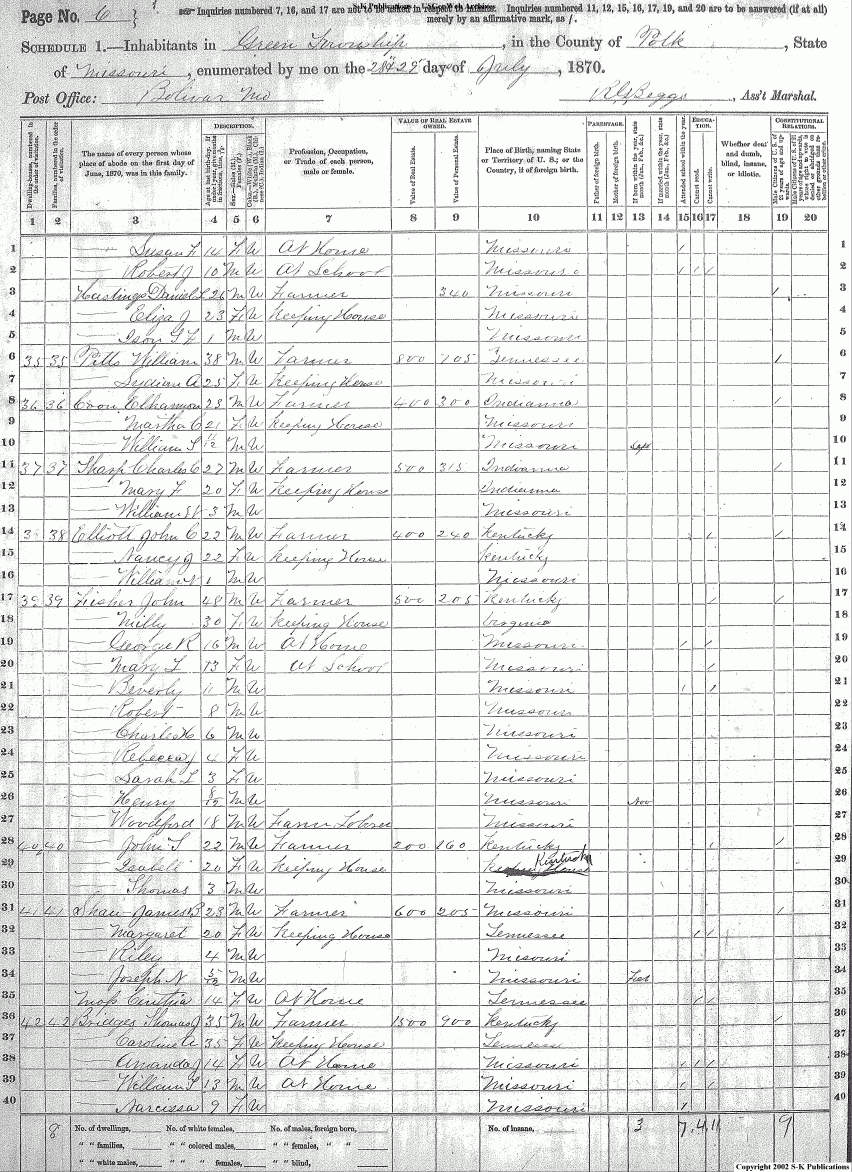 Page No. 6
Inquiries numbered 7, 16, and 17 are not to be asked in respect to infants. Inquiries numbered 11, 12, 15, 16, 17, 19, and 20 are to be answered (if at all)
merely by an affirmative mark, as /.
S-K Publications - USGenWeb Archives
SCHEDULE 1.—Inhabitants in Green Township, in the County of Polk, State
of Missouri, enumerated by me on the 28 & 29 day of July, 1870.
Post Office: Bolivar Mo
Beggs, Ass't Marshal.
Dwelling-houses, numbered in the order of visitation.
Families, numbered in the order of visitation.
The name of every person whose place of abode on the first day of June, 1870, was in this family.
DESCRIPTION.
Profession, Occupation, or Trade of each person, male or female.
VALUE OF REAL ESTATE OWNED.
Value of Real Estate.
Value of Personal Estate.
Place of Birth, naming State or Territory of U. S.; or the Country, if of foreign birth.
PARENTAGE.
Father of foreign birth.
Mother of foreign birth.
EDUCATION.
Attended school within the year.
Cannot read.
Cannot write.
Whether deaf and dumb, blind, insane, or idiotic.
CONSTITUTIONAL RELATIONS.
1 2 3 4 5 6 7 8 9 10 11 12 13 14 15 16 17 18 19 20
1 — Susan F 14 F W At Home Missouri / 1
2 — Robert J 10 M W At School Missouri / / / 2
3 Hastings Daniel L 26 M W Farmer 340 Missouri / 3
4 — Eliza J 23 F W Keeping House Missouri 4
5 — 1 M W Missouri 5
6 35 35 Pitts William 38 M W Farmer 800 105 Tennessee / 6
7 — Lydian A 25 F W Keeping House Missouri 7
8 36 36 23 M W Farmer 400 300 Indianna / 8
9 — Martha C 21 F W Keeping House Missouri 9
10 — William S M W Missouri Sept 10
11 37 37 Sharp Charles C 27 M W Farmer 500 315 Indianna / 11
12 — Mary F 20 F W Keeping House Indianna 12
13 — William W 3 M W Missouri 13
14 38 38 Elliott John C 22 M W Farmer 400 240 Kentucky / / 14
15 — Nancy J 22 F W Keeping House Kentucky 15
16 — William 1 M W Missouri 16
17 39 39 Fisher John 48 M W Farmer 500 205 Kentucky / / 17
18 — Milly 30 F W Keeping House Virginia 18
19 — George R 16 M W At Home Missouri / / 19
20 — Mary L 13 F W At School Missouri / 20
21 — Beverly 11 M W Missouri / / 21
22 — Robert 8 M W Missouri 22
23 — Charles H 6 M W Missouri 23
24 — Rebecca J 4 F W Missouri 24
25 — Sarah L 3 F W Missouri 25
26 — Henry 8/12 M W Missouri Nov 26
27 — Woodford 18 M W Farm Laborer Missouri 27
28 40 40 — John S 22 M W Farmer 200 160 Kentucky / / 28
29 — Isabell 20 F W Keeping House Kentucky 29
30 — Thomas 3 M W Missouri 30
31 41 41 Shaw James B 23 M W Farmer 600 205 Missouri / 31
32 — Margaret 20 F W Keeping House Tennessee / / 32
33 — Riley 4 M W Missouri 33
34 — Joseph N 5/12 M W Missouri Feb 34
35 Moss Cinthia 14 F W At Home Tennessee / / 35
36 42 42 Bridges Thomas J 35 M W Farmer 1500 900 Kentucky / 36
37 — Caroline A 35 F W Keeping House Tennessee 37
38 — Amanda J 14 F W At Home Missouri / / / 38
39 — William S 13 M W At Home Missouri / / 39
40 — Narcissa 9 F W Missouri / 40
8 No. of dwellings, No. of white females, No. of males, foreign born, No. of insane, 3 7 4 11 9
" " families, " " colored males, " " females, " "
" " white males, " " females, " " blind,
Copyright 2002 S-K Publications